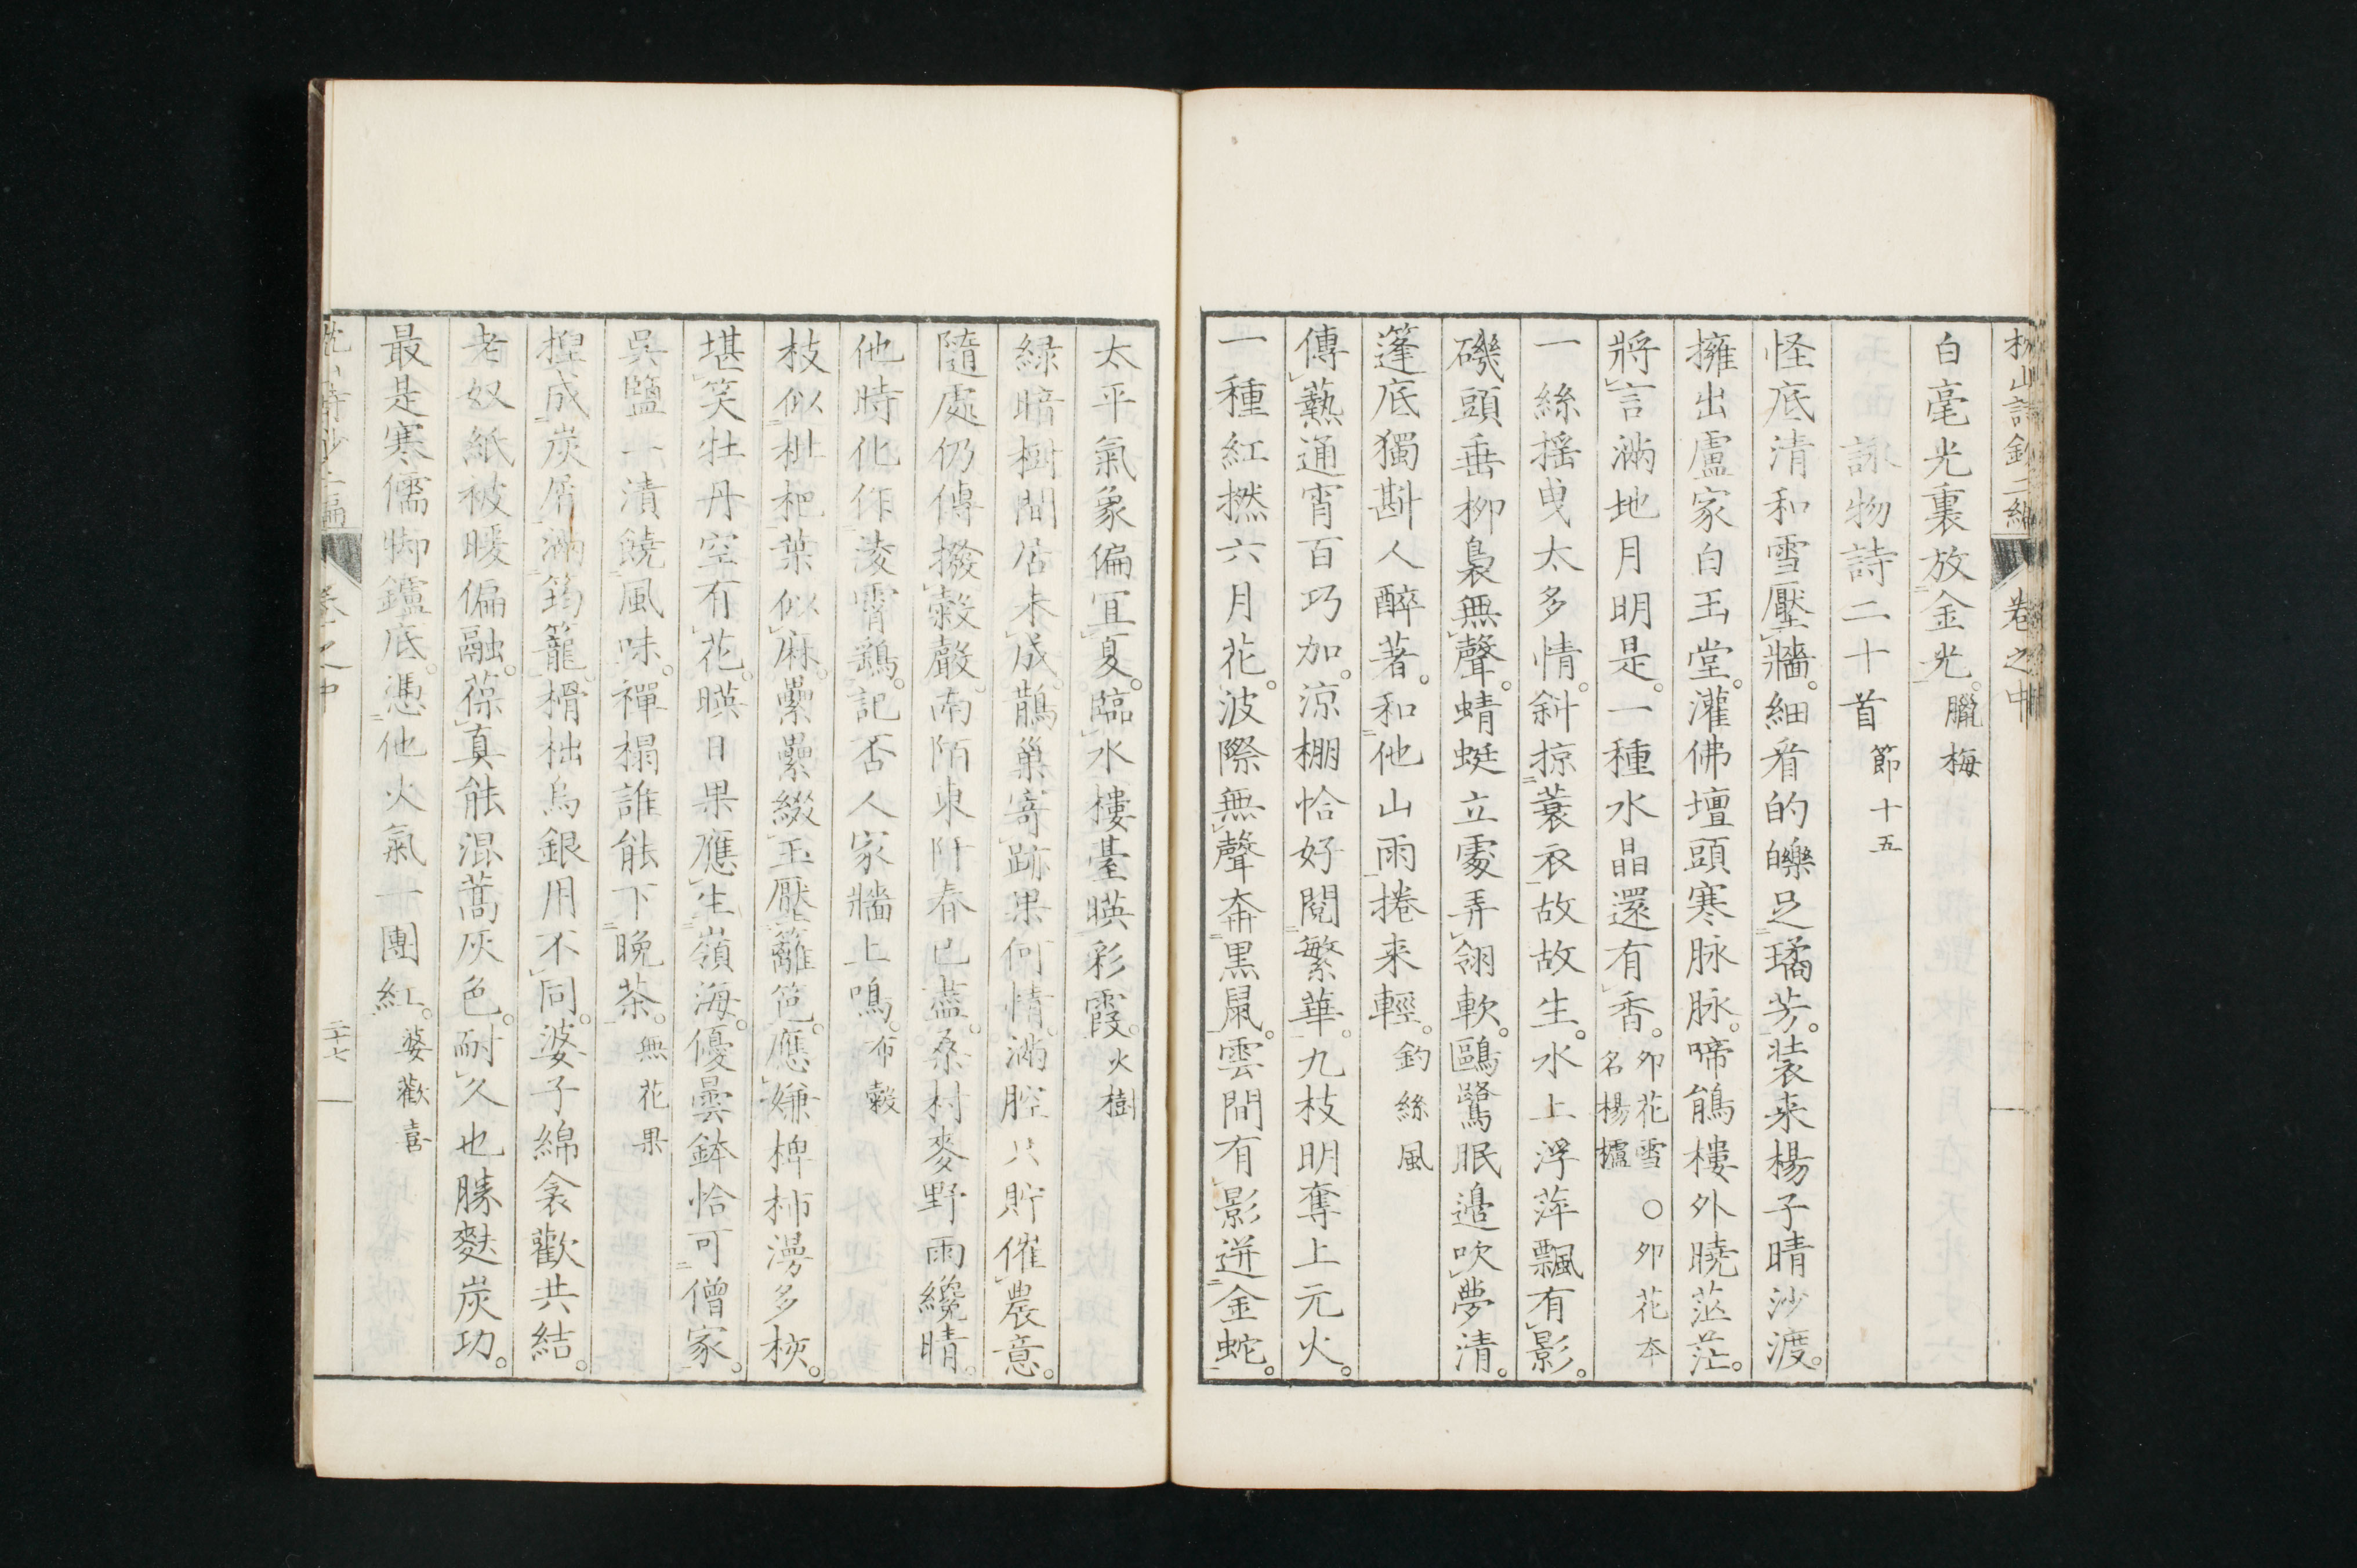 枕山詩鈔二編 卷之中
白毫光裏放金光。臘梅
詠物詩二十首 節十五
怪底清和雪壓牆。細看的皪足璚芳。裝来楊子晴沙渡。
擁出盧家白玉堂。灌佛壇頭寒脉脉。啼鵑樓外曉茫茫。
將言滿地月明是。一種水晶還有香。卯花雪○卯花本名楊櫨
一絲揺曳太多情。斜掠蓑衣故故生。水上浮萍飄有影。
磯頭垂柳裊無聲。蜻蜓立處弄翎軟。鷗鷺眠邉吹夢清。
篷底獨斟人醉著。和他山雨捲来輕。釣絲風
傳爇通宵百巧加。涼棚恰好閱繁華。九枝明奪上元火。
一種紅撚六月花。波際無聲奔黒鼠。雲間有影迸金蛇。
太平氣象偏宜夏。臨水樓臺暎彩霞。火樹
緑暗樹間居未成。鵲巢寄跡果何情。滿腔只貯催農意。
隨處仍傳撥穀聲。南陌東阡春已盡。桑村麥野雨纔晴。
他時化作凌霄鷂。記否人家牆上鳴。布穀
枝似枇杷葉似麻。纍纍綴玉壓籬笆。應嫌椑柹漫多核。
堪笑牡丹空有花。暎日果應生嶺海。優曇鉢恰可僧家。
吳鹽一漬饒風味。禪榻誰能下晩茶。無花果
揑成炭屑滿筠籠。榾柮烏銀用不同。婆子綿衾歡共結。
老奴紙被暖偏融。葆真能混蒿灰色。耐久也勝麩炭功。
最是寒儒脚鑪底。憑他火氣一團紅。婆歡喜
枕山詩鈔二編 卷之中 二十七